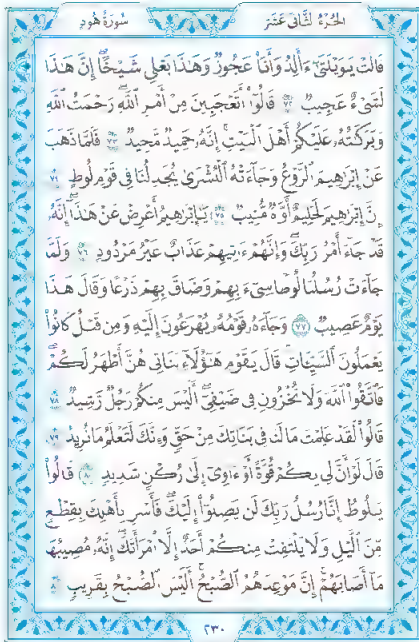 سُورَةُ هُودٍ الجُزءُ الثَّانِي عَشَرَ
قَالَتْ يَٰوَيْلَتَىٰٓ ءَأَلِدُ وَأَنَا۠ عَجُوزٌ وَهَٰذَا بَعْلِي شَيْخًا ۖ إِنَّ هَٰذَا
لَشَيْءٌ عَجِيبٌ ٧٢ قَالُوٓا۟ أَتَعْجَبِينَ مِنْ أَمْرِ ٱللَّهِ ۖ رَحْمَتُ ٱللَّهِ
وَبَرَكَٰتُهُۥ عَلَيْكُمْ أَهْلَ ٱلْبَيْتِ ۚ إِنَّهُۥ حَمِيدٌ مَّجِيدٌ ٧٣ فَلَمَّا ذَهَبَ
عَنْ إِبْرَٰهِيمَ ٱلرَّوْعُ وَجَآءَتْهُ ٱلْبُشْرَىٰ يُجَٰدِلُنَا فِي قَوْمِ لُوطٍ ٧٤
إِنَّ إِبْرَٰهِيمَ لَحَلِيمٌ أَوَّٰهٌ مُّنِيبٌ ٧٥ يَٰٓإِبْرَٰهِيمُ أَعْرِضْ عَنْ هَٰذَآ ۖ إِنَّهُۥ
قَدْ جَآءَ أَمْرُ رَبِّكَ ۖ وَإِنَّهُمْ ءَاتِيهِمْ عَذَابٌ غَيْرُ مَرْدُودٍ ٧٦ وَلَمَّا
جَآءَتْ رُسُلُنَا لُوطًا سِيٓءَ بِهِمْ وَضَاقَ بِهِمْ ذَرْعًا وَقَالَ هَٰذَا
يَوْمٌ عَصِيبٌ ٧٧ وَجَآءَهُۥ قَوْمُهُۥ يُهْرَعُونَ إِلَيْهِ وَمِن قَبْلُ كَانُوا۟
يَعْمَلُونَ ٱلسَّيِّـَٔاتِ ۚ قَالَ يَٰقَوْمِ هَٰٓؤُلَآءِ بَنَاتِي هُنَّ أَطْهَرُ لَكُمْ ۖ
فَٱتَّقُوا۟ ٱللَّهَ وَلَا تُخْزُونِ فِي ضَيْفِيٓ ۖ أَلَيْسَ مِنكُمْ رَجُلٌ رَّشِيدٌ ٧٨
قَالُوا۟ لَقَدْ عَلِمْتَ مَا لَنَا فِي بَنَاتِكَ مِنْ حَقٍّ وَإِنَّكَ لَتَعْلَمُ مَا نُرِيدُ ٧٩
قَالَ لَوْ أَنَّ لِي بِكُمْ قُوَّةً أَوْ ءَاوِيٓ إِلَىٰ رُكْنٍ شَدِيدٍ ٨٠ قَالُوا۟
يَٰلُوطُ إِنَّا رُسُلُ رَبِّكَ لَن يَصِلُوٓا۟ إِلَيْكَ ۖ فَأَسْرِ بِأَهْلِكَ بِقِطْعٍ
مِّنَ ٱلَّيْلِ وَلَا يَلْتَفِتْ مِنكُمْ أَحَدٌ إِلَّا ٱمْرَأَتَكَ ۖ إِنَّهُۥ مُصِيبُهَا
مَآ أَصَابَهُمْ ۚ إِنَّ مَوْعِدَهُمُ ٱلصُّبْحُ ۚ أَلَيْسَ ٱلصُّبْحُ بِقَرِيبٍ ٨١
٢٣٠